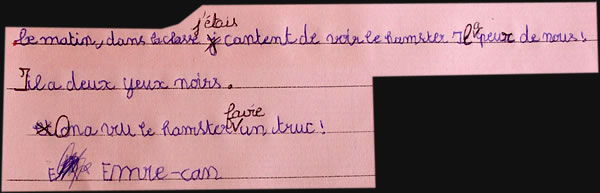 Le matin, dans la classe j'étais cantent de voir le hamster Il a peur de nous!
Il a deux yeux noirs.
On a vu le hamster faire un truc!
Emre-can